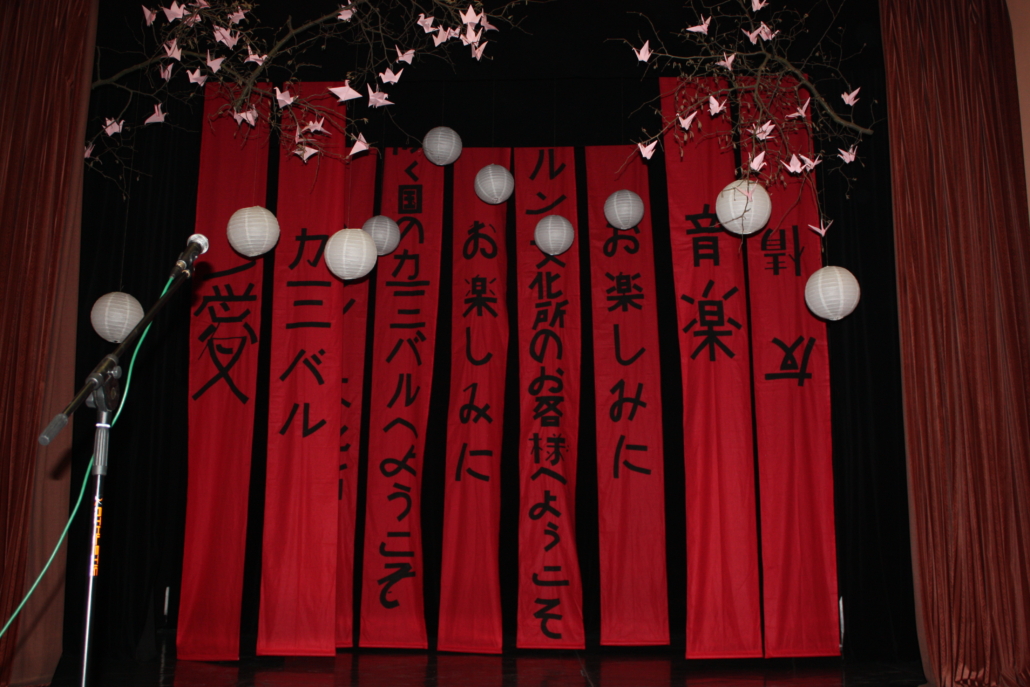 愛
カ三バル
く国のカ三バルへようこそ
お楽しみに
ルン文化所のお客様へようこそ
お楽しみに
音楽
友情
ATHLETIC